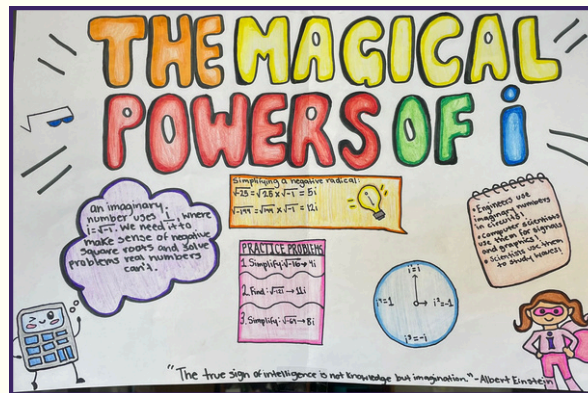 THE MAGICAL
POWERS OF i
an imaginary
number uses i, where
i=√-1. We need it to
make sense of negative
square roots and solve
problems real numbers
can't.
Simplifying a negative radical:
√-25 = √25 x √-1 = 5i
√-144 = √144 x √-1 = 12i
PRACTICE PROBLEMS
1. Simplify: √-16 → 4i
2. Find: √-121 → 11i
3. Simplify: √-64 → 8i
i=i
i⁴=1
i²=-1
i³=-i
• Engineers use
imaginary numbers
in circuits!
• Computer scientists
use them for signals
and graphics!
• Scientists use them
to study waves!
i
"The true sign of intelligence is not knowledge but imagination." -Albert Einstein